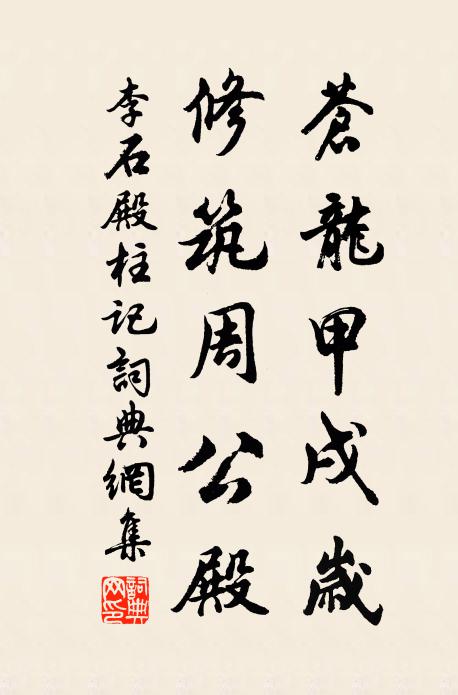 蒼龍甲戌歲
修筑周公殿
李石殿柱记詞典網集
詞典网印